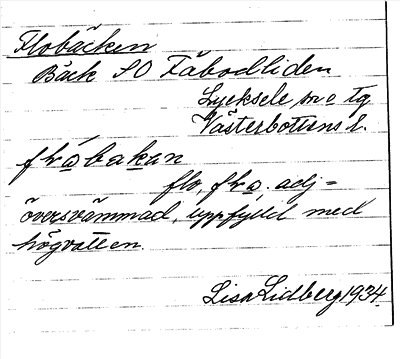 Flobäcken
Bäck SO Fäbodliden
Lycksele sn o tg
Västerbottens l.
flo, adj =
översvämmad, uppfylld med
högvatten.
Lisa Lidberg 1934.